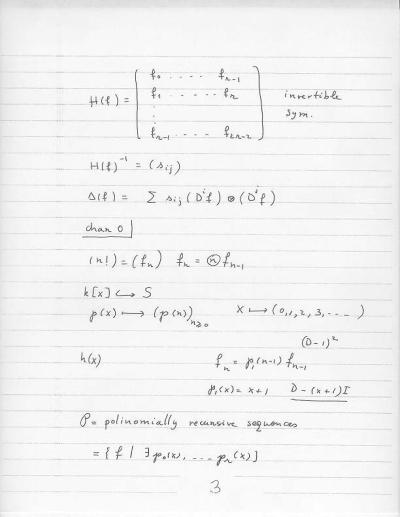 H(f) = [ f_0 . . . . f_{n-1}
f_1 . . . . . . f_n
:
f_{n-1} . . . . f_{2n-2} ] invertible sym.
H(f)^{-1} = (s_{ij})
Δ(f) = Σ s_{ij} (D^i f) ⊗ (D^j f)
char 0
(n!) = (f_n) f_n = ⓝ f_{n-1}
k[x] ↪ S
p(x) ⟼ (p(n))_{n≥0} X ⟼ (0,1,2,3,...)
(D-1)^2
h(x) f_n = p_1(n-1) f_{n-1}
p_1(x) = x+1 D-(x+1)I
P = polinomially recursive sequences
= { f | ∃ p_0(x), ... p_r(x) }
3